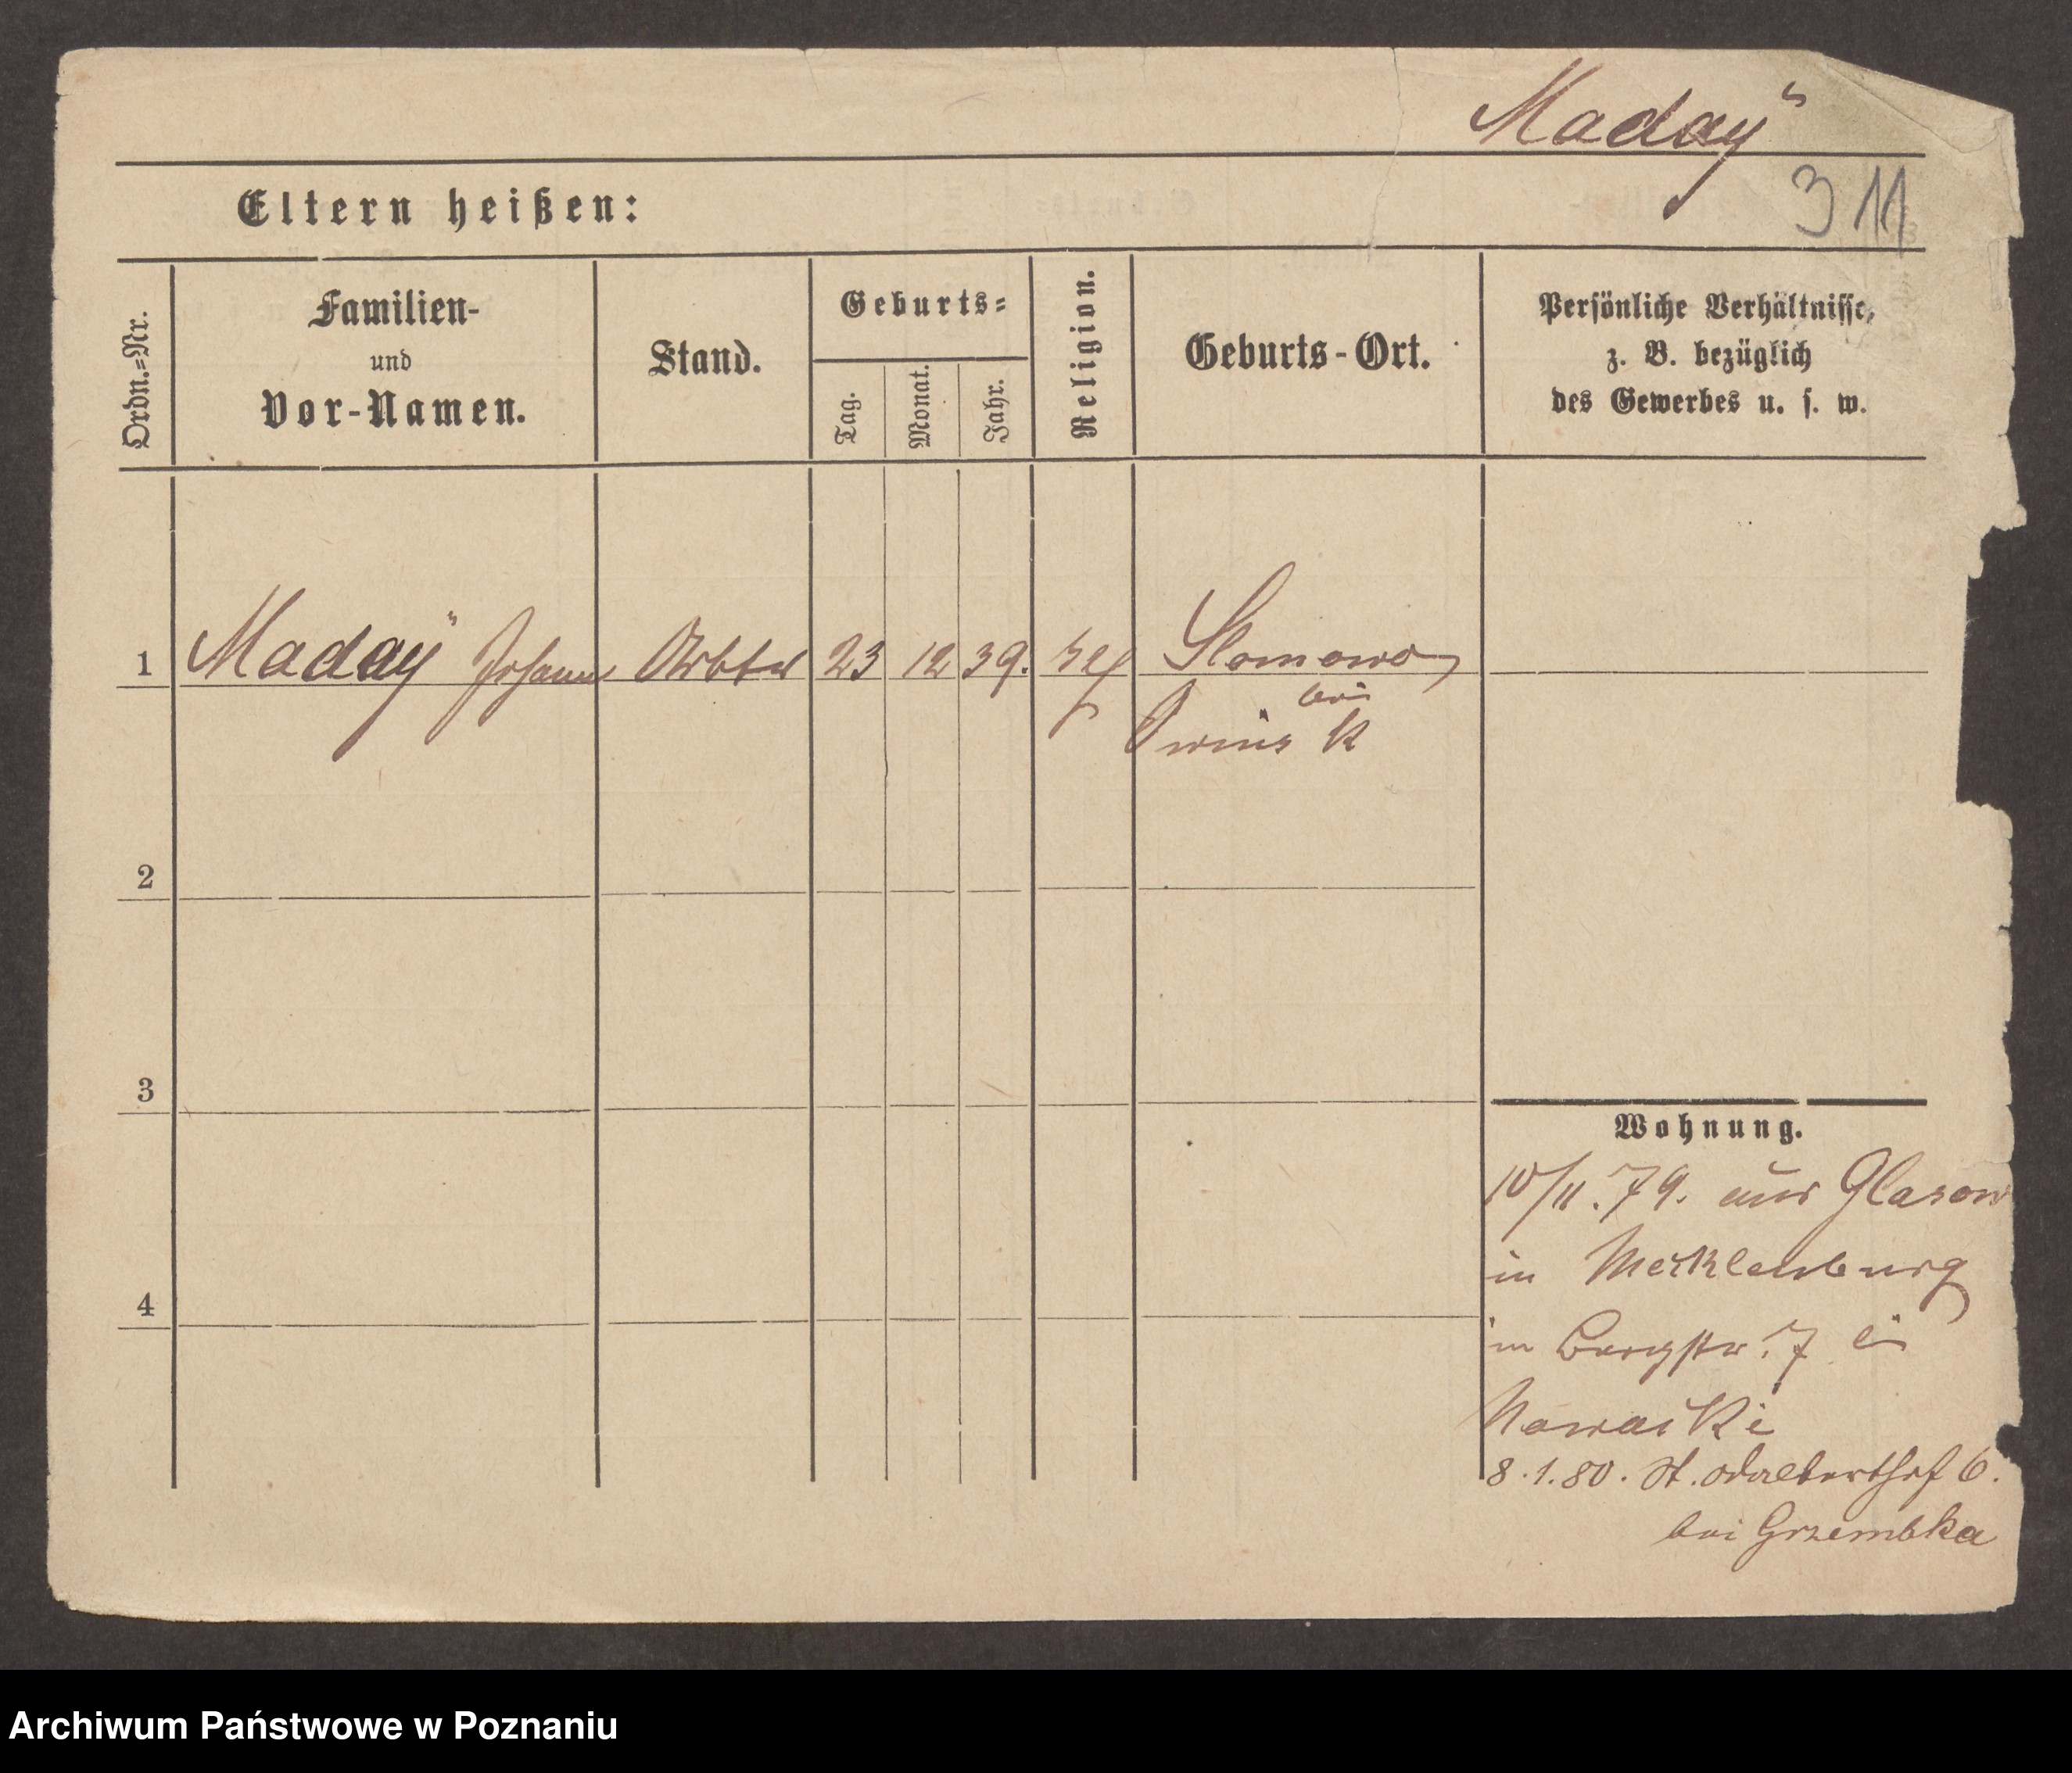 Maday
311
Eltern heißen:
Ordn.=Nr.
Familien-
und
Vor-Namen.
Stand.
Geburts=
Tag.
Monat.
Jahr.
Religion.
Geburts-Ort.
Persönliche Verhältnisse,
z. B. bezüglich
des Gewerbes u. s. w.
1 Maday Johann 23 12 39. Slomowo
bei
Owinsk
2
3
4
Wohnung.
10/11.79. aus Glasow
in Mecklenburg
in Bergstr. 7 bei
Nowacki
8.1.80. St. Adalberthof 6.
bei Grzembka
Archiwum Państwowe w Poznaniu